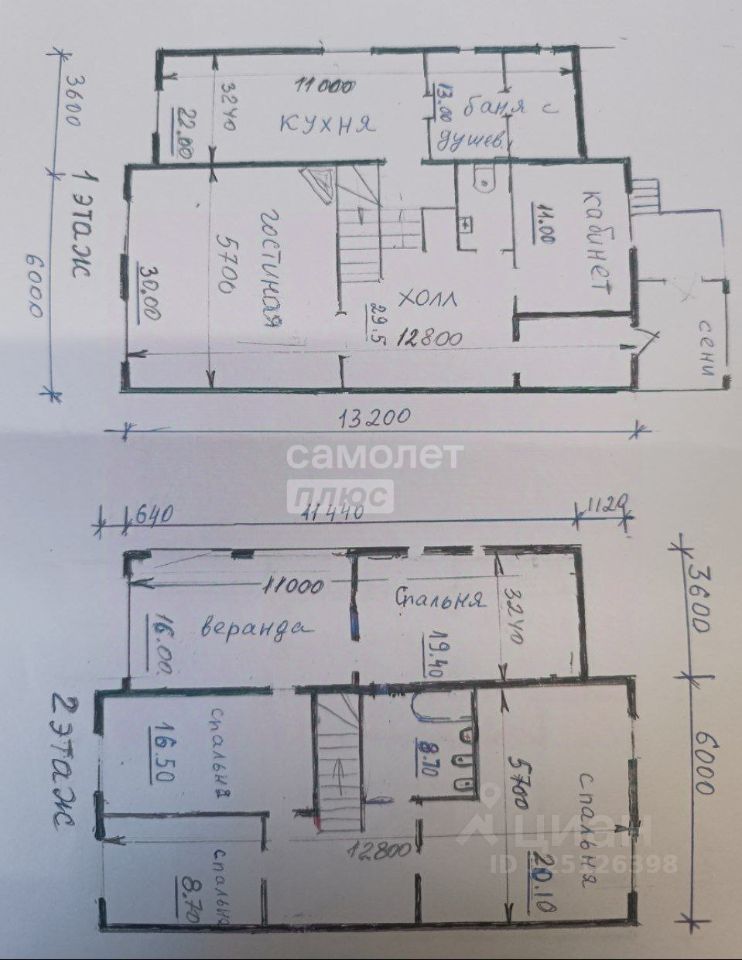 3600
6000
1 этаж
11000
3240
22.00
кухня
13.00
баня с
душев.
гостиная
5700
30.00
холл
29.5
12800
11.00
кабинет
сени
13200
самолет
плюс
640
11440
1120
11000
веранда
16.00
Спальня
3240
19.40
3600
6000
2 этаж
спальня
16.50
8.70
5700
спальня
20.10
12800
спальня
8.70
циан